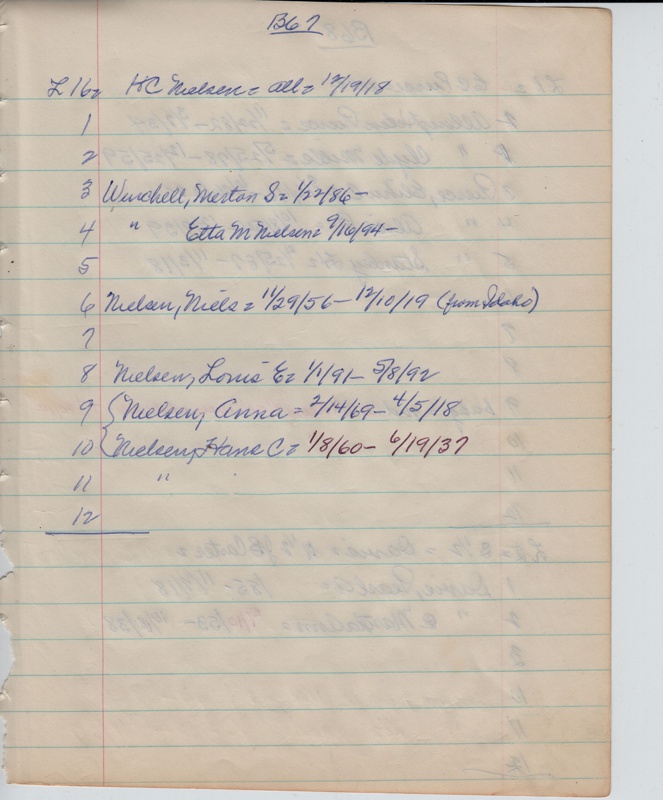 B67
L 16= HC Nielsen = all = 12/19/18
1
2
3 Winchell, Merton S = 1/22/86 -
4 " Etta M Nielsen = 9/16/94 -
5
6 Nielsen, Niels = 11/29/56 - 12/10/19 (from Idaho)
7
8 Nielsen, Louis E = 1/1/91 - 5/8/92
9 { Nielsen, Anna = 2/14/69 - 4/5/18
10 { Nielsen, Hans C = 1/8/60 - 6/19/37
11 "
12